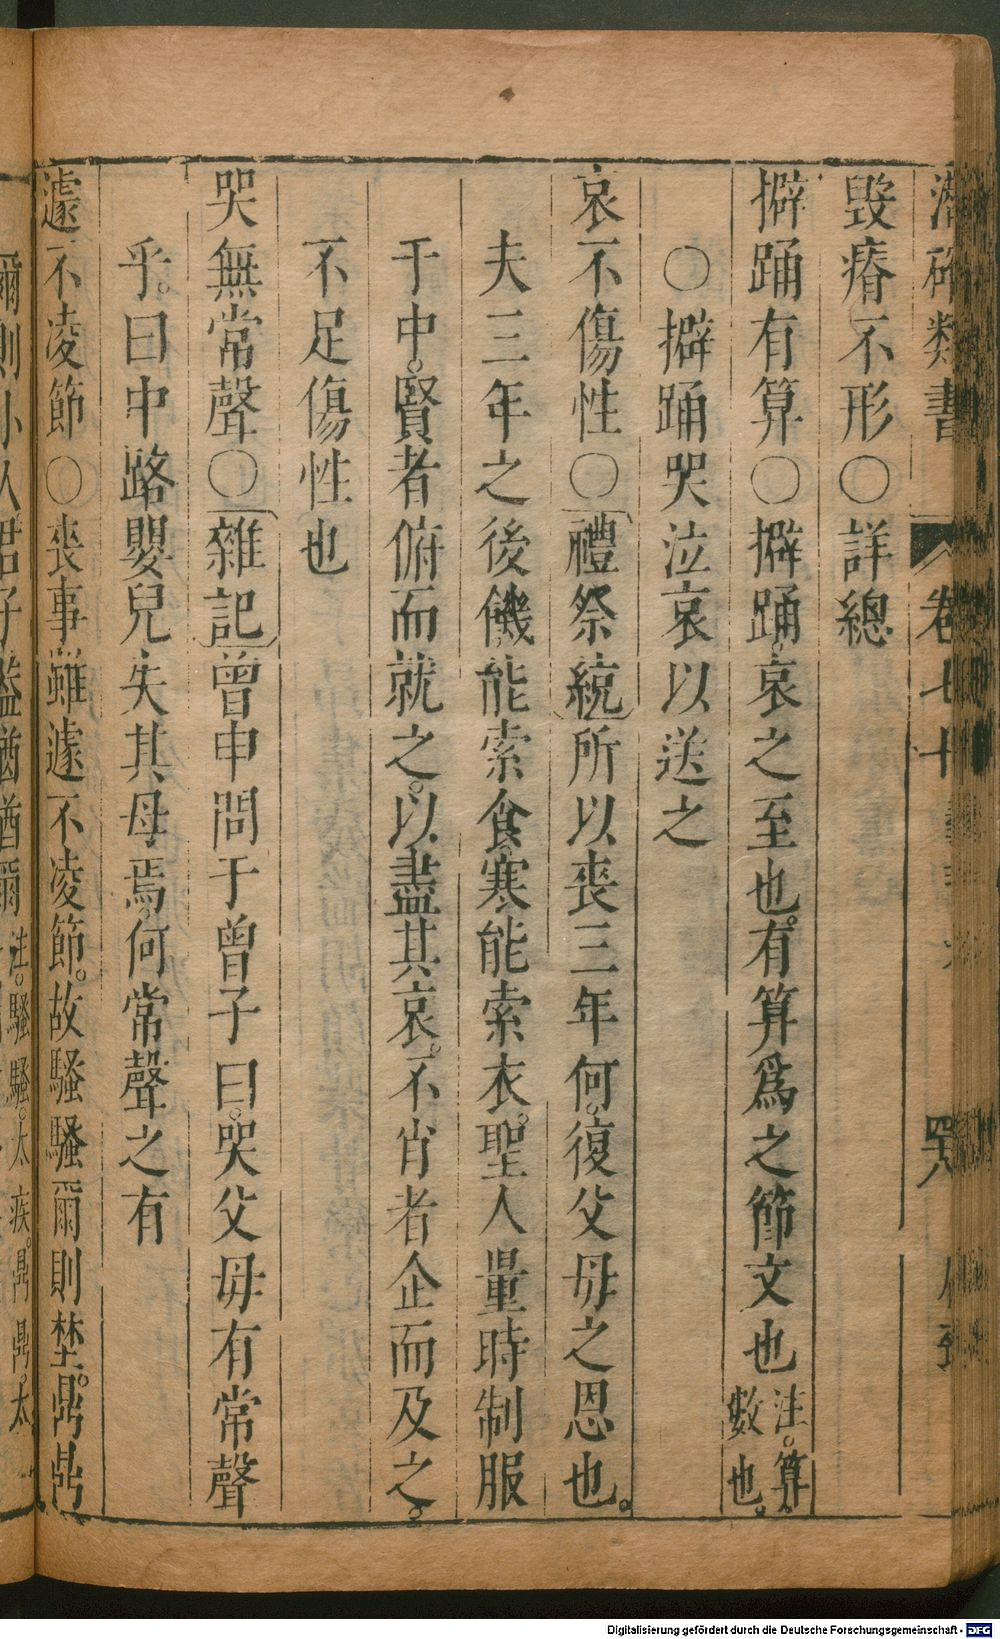 潛确類書 卷七十
毀瘠不形○詳總
擗踊有算○擗踊。哀之至也。有算爲之節文也注。算數也。
○擗踊哭泣哀以送之
哀不傷性○禮祭統所以喪三年何。復父母之恩也。
夫三年之後僟能索食寒能索衣。聖人量時制服
于中。賢者俯而就之。以盡其哀。不肖者企而及之。
不足傷性也
哭無常聲○雜記曾申問于曾子曰。哭父母有常聲
乎。曰中路嬰兒失其母焉。何常聲之有
遽不凌節○喪事雖遽不凌節。故騷騷爾則埜。鼎鼎
爾則小人君子蓋猶猶爾注。騷騷。太疾。鼎鼎。太
Digitalisierung gefördert durch die Deutsche Forschungsgemeinschaft - DFG